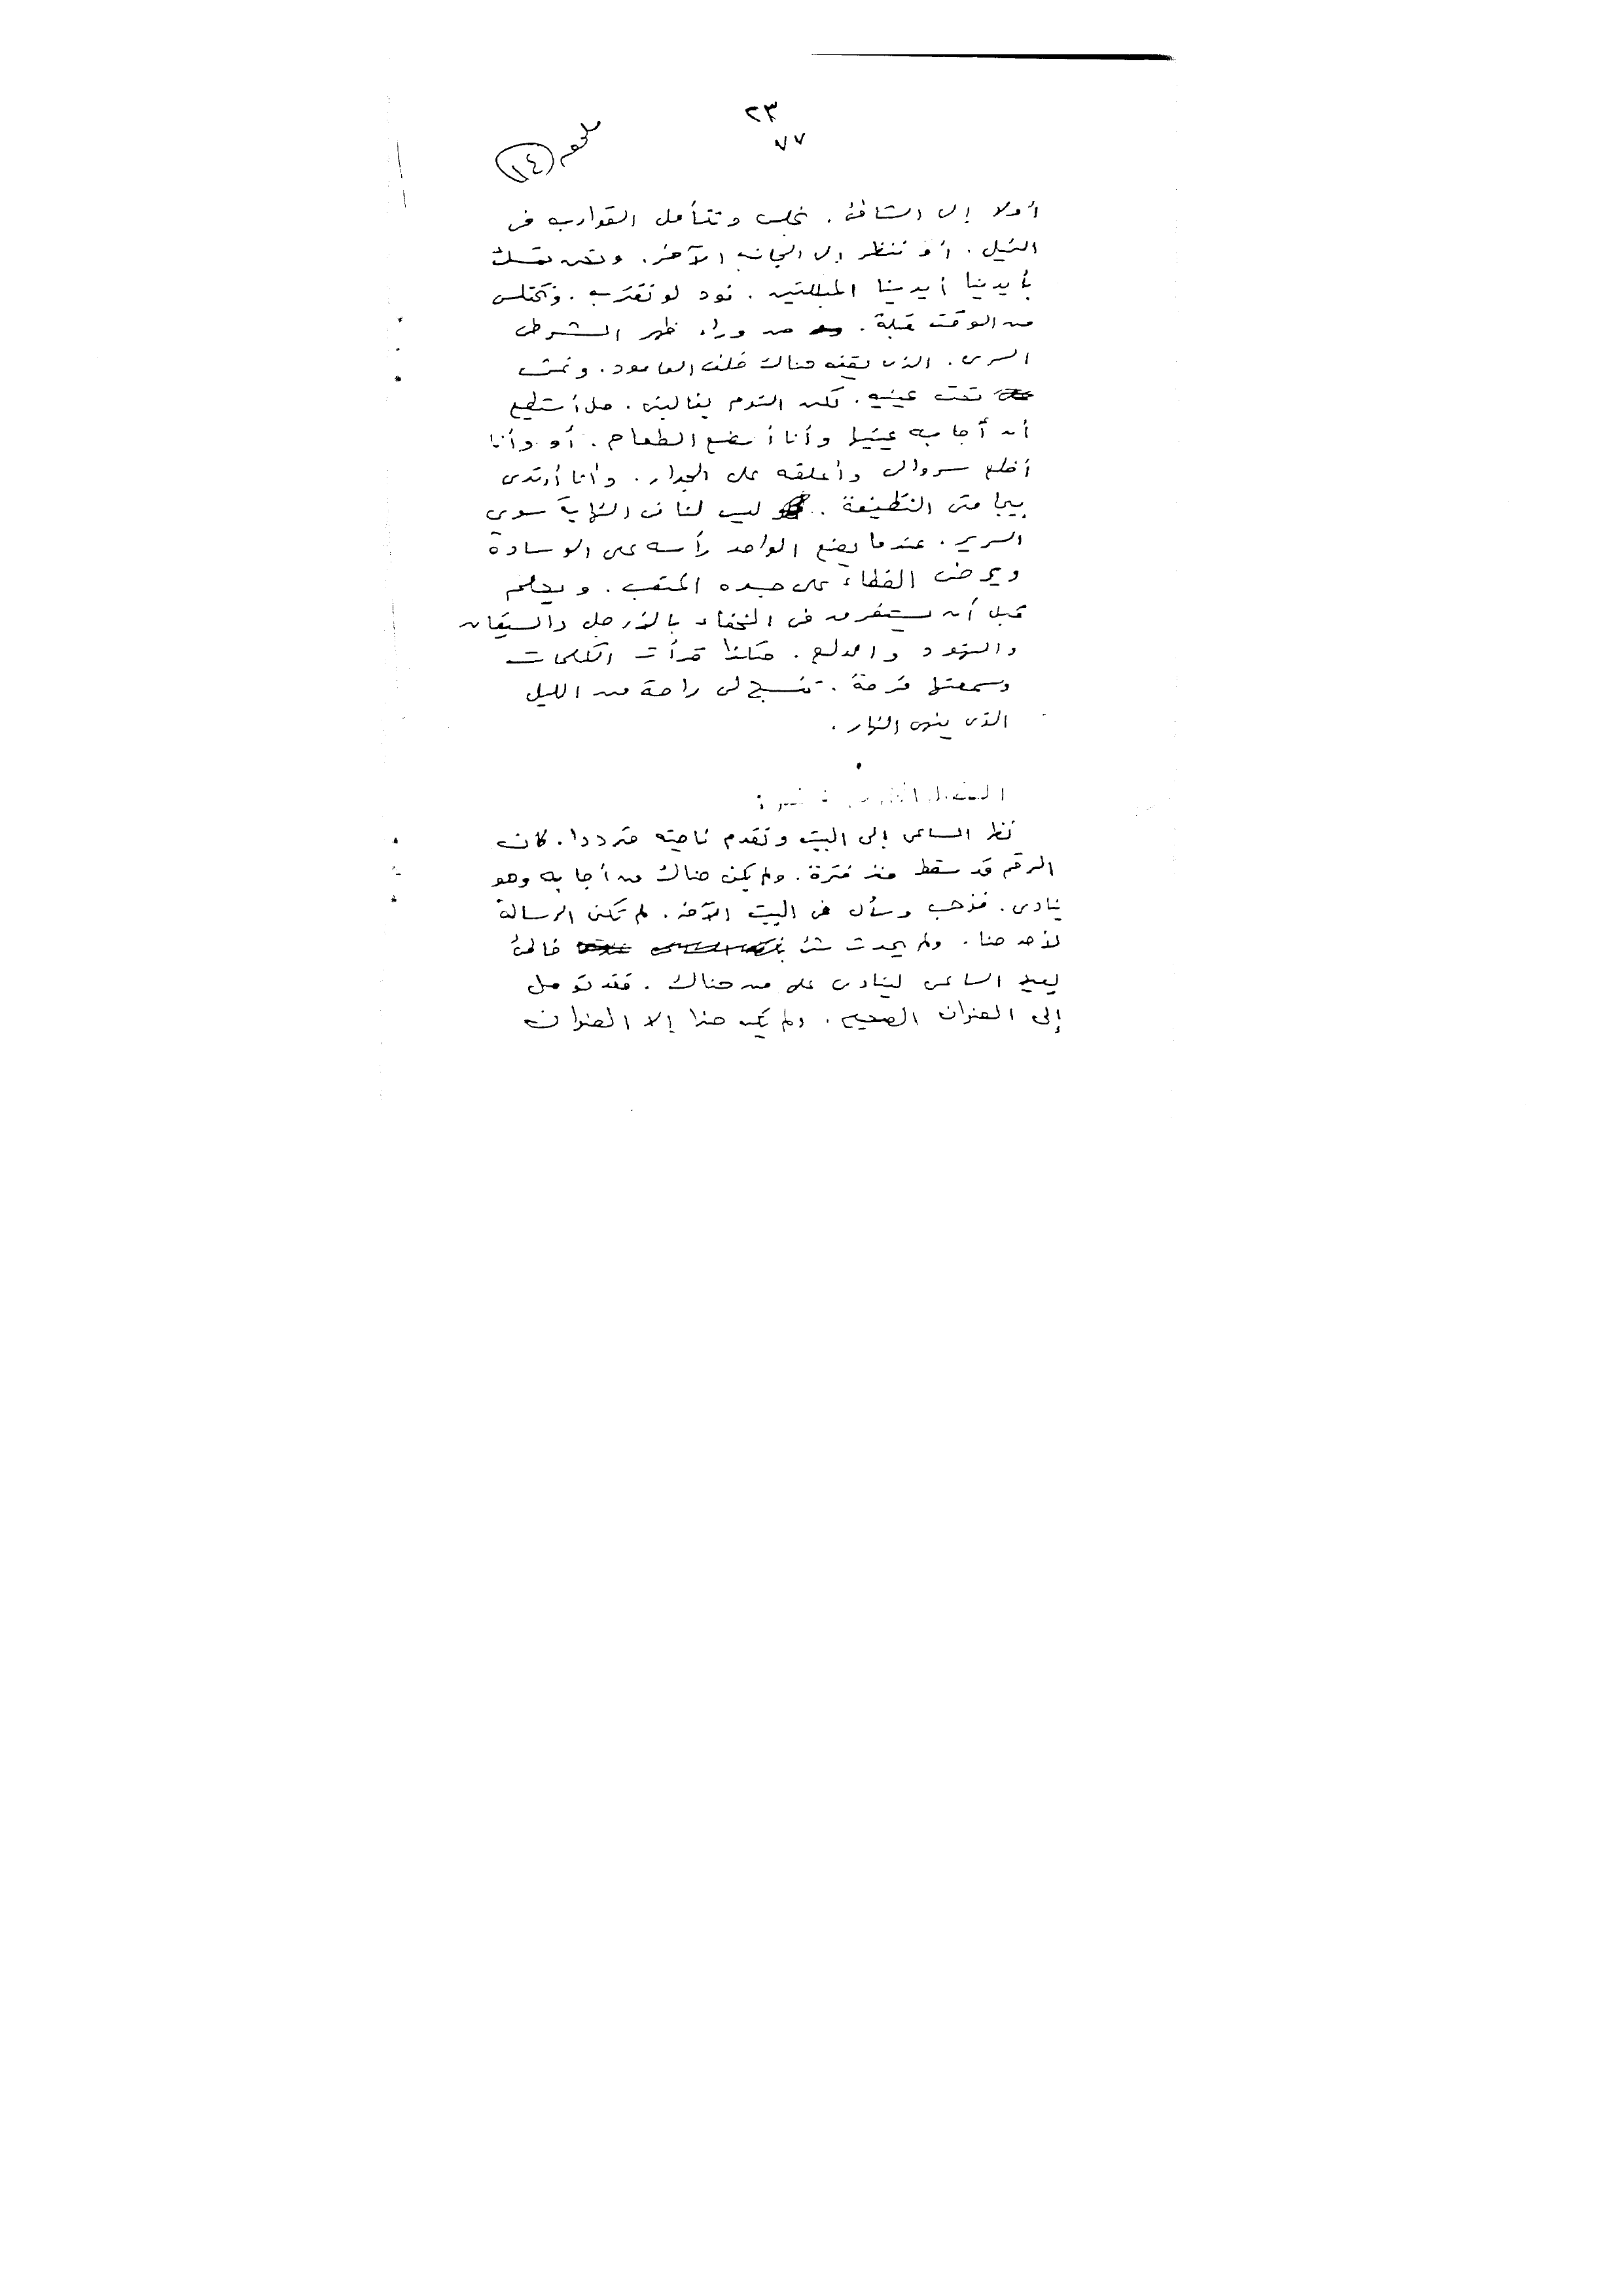 ٢٣
٧٧
ملحق (١٤)
أولا إلى الشاطئ. نجلس ونتأمل القوارب فى
النيل. أو ننظر إلى الجانب الآخر. ونحن نمسك
بأيدينا أيدينا المبللتين. نود لو نقترب. ونختلس
من الوقت قبلة. من وراء ظهر الشرطى
السرى. الذى يقف هناك خلف العامود. ونمشى
تحت عينيه. لكن النوم يغالبنى. هل أستطيع
أن أجابه عينيها وأنا أمضغ الطعام. أو وأنا
أخلع سروالى وأعلقه على الجدار. وأنا أرتدى
بيجامتى النظيفة. ليس لنا فى النهاية سوى
السرير. عندما يضع الواحد رأسه على الوسادة
الغطاء على جسده المتعب. ويحلم
قبل أن يستغرق فى الخفاء بالأرجل والسيقان
والنهود و. هكذا قرأت الكلمات
وسمعتها فرحة. تنسج لى راحة من الليل
الذى ينهى النهار.
نظر الساعى إلى البيت وتقدم ناحيته مترددا. كان
الرقم قد سقط منذ فترة. ولم يكن هناك من أجابه وهو
ينادى. فذهب وسأل فى البيت الآخر. لم تكن الرسالة
لأحد هنا. ولم يحدث شئ خاطئ
يعيد الساعى لينادى على من هناك. فقد توصل
إلى العنوان الصحيح. ولم يكن هذا إلا العنوان